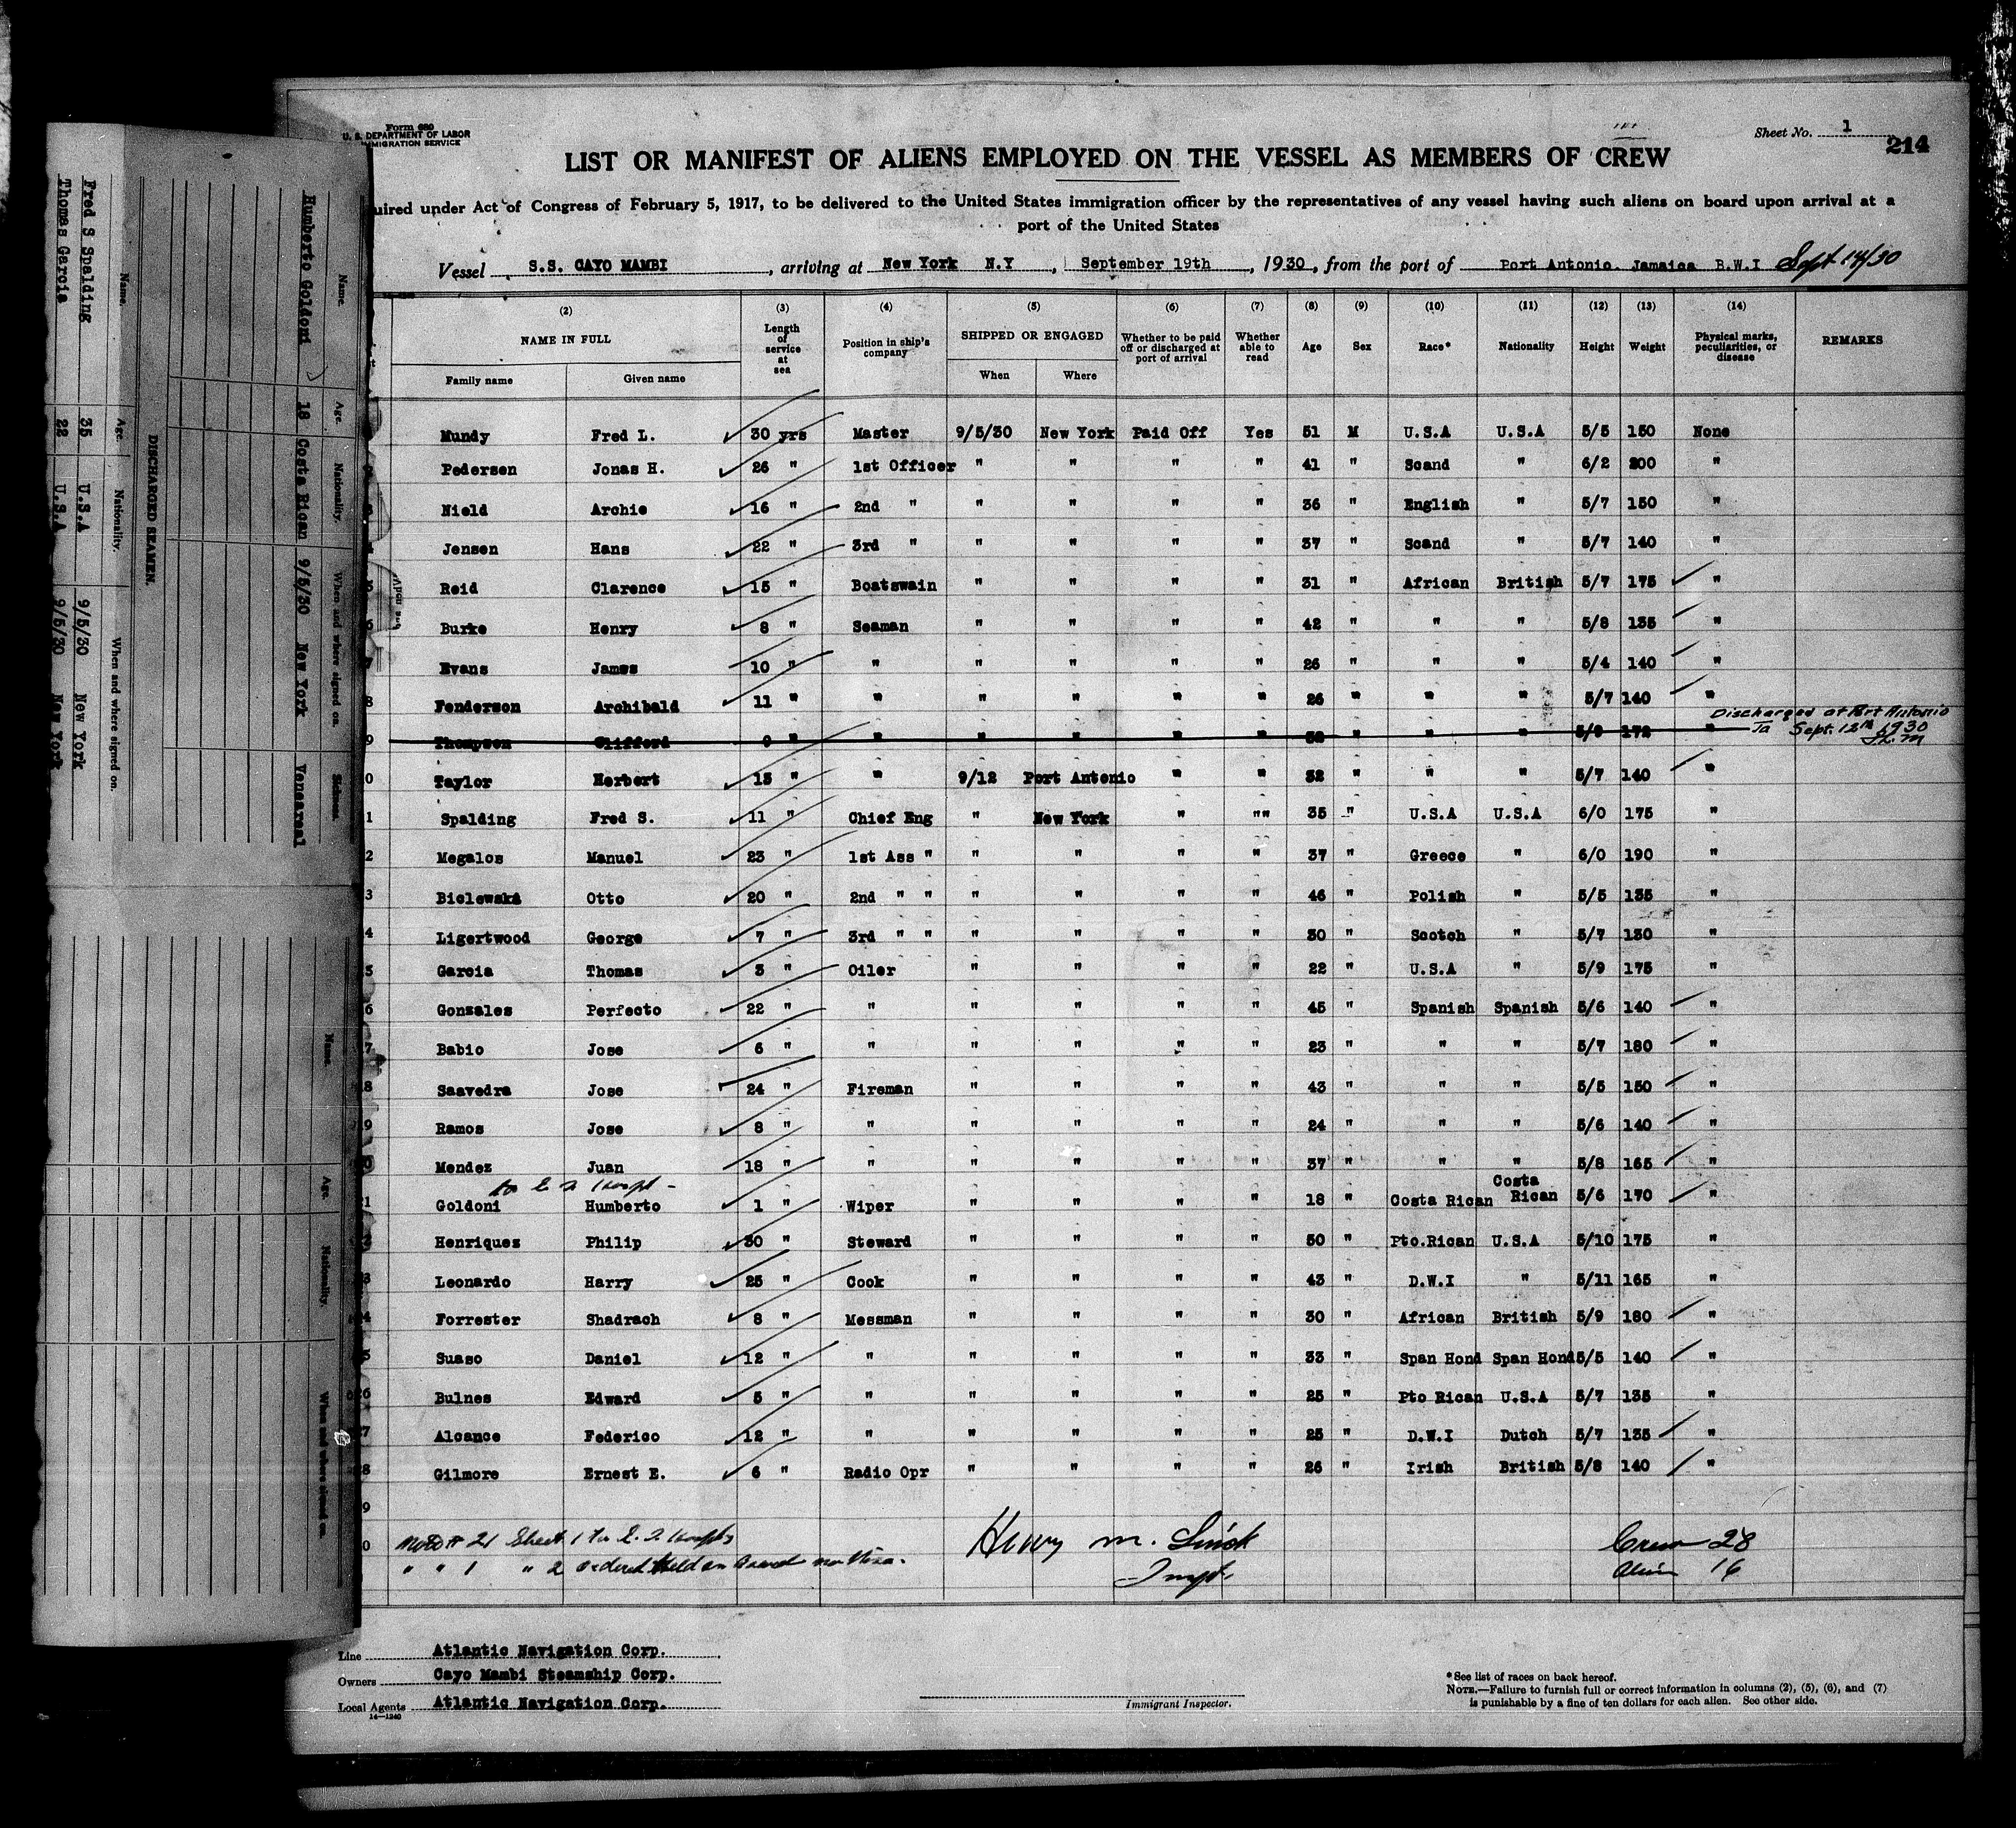 Form 680
U. S. DEPARTMENT OF LABOR
IMMIGRATION SERVICE
Sheet No. 1
214
LIST OR MANIFEST OF ALIENS EMPLOYED ON THE VESSEL AS MEMBERS OF CREW
uired under Act of Congress of February 5, 1917, to be delivered to the United States immigration officer by the representatives of any vessel having such aliens on board upon arrival at a
port of the United States
Vessel S.S. CAYO MAMBI, arriving at New York N.Y, September 19th, 1930, from the port of Port Antonio. Jamaica B.W.I Sept 14/30
(2) (3) (4) (5) (6) (7) (8) (9) (10) (11) (12) (13) (14)
NAME IN FULL Length of service at sea Position in ship's company SHIPPED OR ENGAGED Whether to be paid off or discharged at port of arrival Whether able to read Age Sex Race* Nationality Height Weight Physical marks, peculiarities, or disease REMARKS
Family name Given name When Where
Mundy Fred L. 30 yrs Master 9/5/30 New York Paid Off Yes 51 M U.S.A U.S.A 5/5 150 None
Pedersen Jonas H. 26 " 1st Officer " " " " 41 " Scand " 6/2 200 "
Nield Archie 16 " 2nd " " " " " 36 " English " 5/7 150 "
4 Jensen Hans 22 " 3rd " " " " " 37 " Scand " 5/7 140 "
5 Reid Clarence 15 " Boatswain " " " " 31 " African British 5/7 175 "
6 Burke Henry 8 " Seaman " " " " 42 " " " 5/8 135 "
7 Evans James 10 " " " " " " 26 " " " 5/4 140 "
8 Fenderson Archibald 11 " " " " " " 26 " " " 5/7 140 "
Discharged at Port Antonio
9 Thompson Clifford 9 " " " " " " 38 " " " 5/9 172 " Ja Sept. 12th 1930
0 Taylor Herbert 13 " " 9/12 Port Antonio " " 32 " " " 5/7 140 "
1 Spalding Fred S. 11 " Chief Eng " New York " "" 35 " U.S.A U.S.A 6/0 175 "
2 Megalos Manuel 23 " 1st Ass " " " " " 37 " Greece " 6/0 190 "
3 Bielewski Otto 20 " 2nd " " " " " " 46 " Polish " 5/5 135 "
4 Ligertwood George 7 " 3rd " " " " " " 30 " Scotch " 5/7 130 "
5 Garcia Thomas 3 " Oiler " " " " 22 " U.S.A " 5/9 175 "
6 Gonzales Perfecto 22 " " " " " " 45 " Spanish Spanish 5/6 140 "
7 Babio Jose 6 " " " " " " 23 " " " 5/7 180 "
8 Saavedra Jose 24 " Fireman " " " " 43 " " " 5/5 150 "
9 Ramos Jose 8 " " " " " " 24 " " " 5/6 140 "
0 Mendez Juan 18 " " " " " " 37 " " " 5/8 165 "
to E I Hospt -
1 Goldoni Humberto 1 " Wiper " " " " 18 " Costa Rican Costa Rican 5/6 170 "
Henriques Philip 30 " Steward " " " " 50 " Pto.Rican U.S.A 5/10 175 "
3 Leonardo Harry 25 " Cook " " " " 43 " D.W.I " 5/11 165 "
4 Forrester Shadrach 8 " Messman " " " " 30 " African British 5/9 180 "
5 Suaso Daniel 12 " " " " " " 33 " Span Hond Span Hond 5/5 140 "
26 Bulnes Edward 5 " " " " " " 25 " Pto Rican U.S.A 5/7 135 "
7 Alcance Federico 12 " " " " " " 25 " D.W.I Dutch 5/7 135 "
8 Gilmore Ernest E. 6 " Radio Opr " " " " 26 " Irish British 5/8 140 "
9
0 21 Sheet 1 To E. I Hospt
" " 1 " 2 ordered Held on Board no Visa.
Henry M.
Insp.
Crew 28
Alien 16
Line Atlantic Navigation Corp.
Owners Cayo Mambi Steamship Corp.
Local Agents Atlantic Navigation Corp.
14—1240
Immigrant Inspector.
*See list of races on back hereof.
NOTE.—Failure to furnish full or correct information in columns (2), (5), (6), and (7)
is punishable by a fine of ten dollars for each alien. See other side.
Name. Age. Nationality. When and where signed on. Sickness.
Humberto Goldoni 18 Costa Rican 9/5/30 New York Veneareal
DISCHARGED SEAMEN.
Name. Age. Nationality. When and where signed on.
Fred S Spalding 35 U.S.A 9/5/30 New York
Thomas Garcia 22 U.S.A 9/5/30 New York
Name. Age. Nationality. When and where signed on.